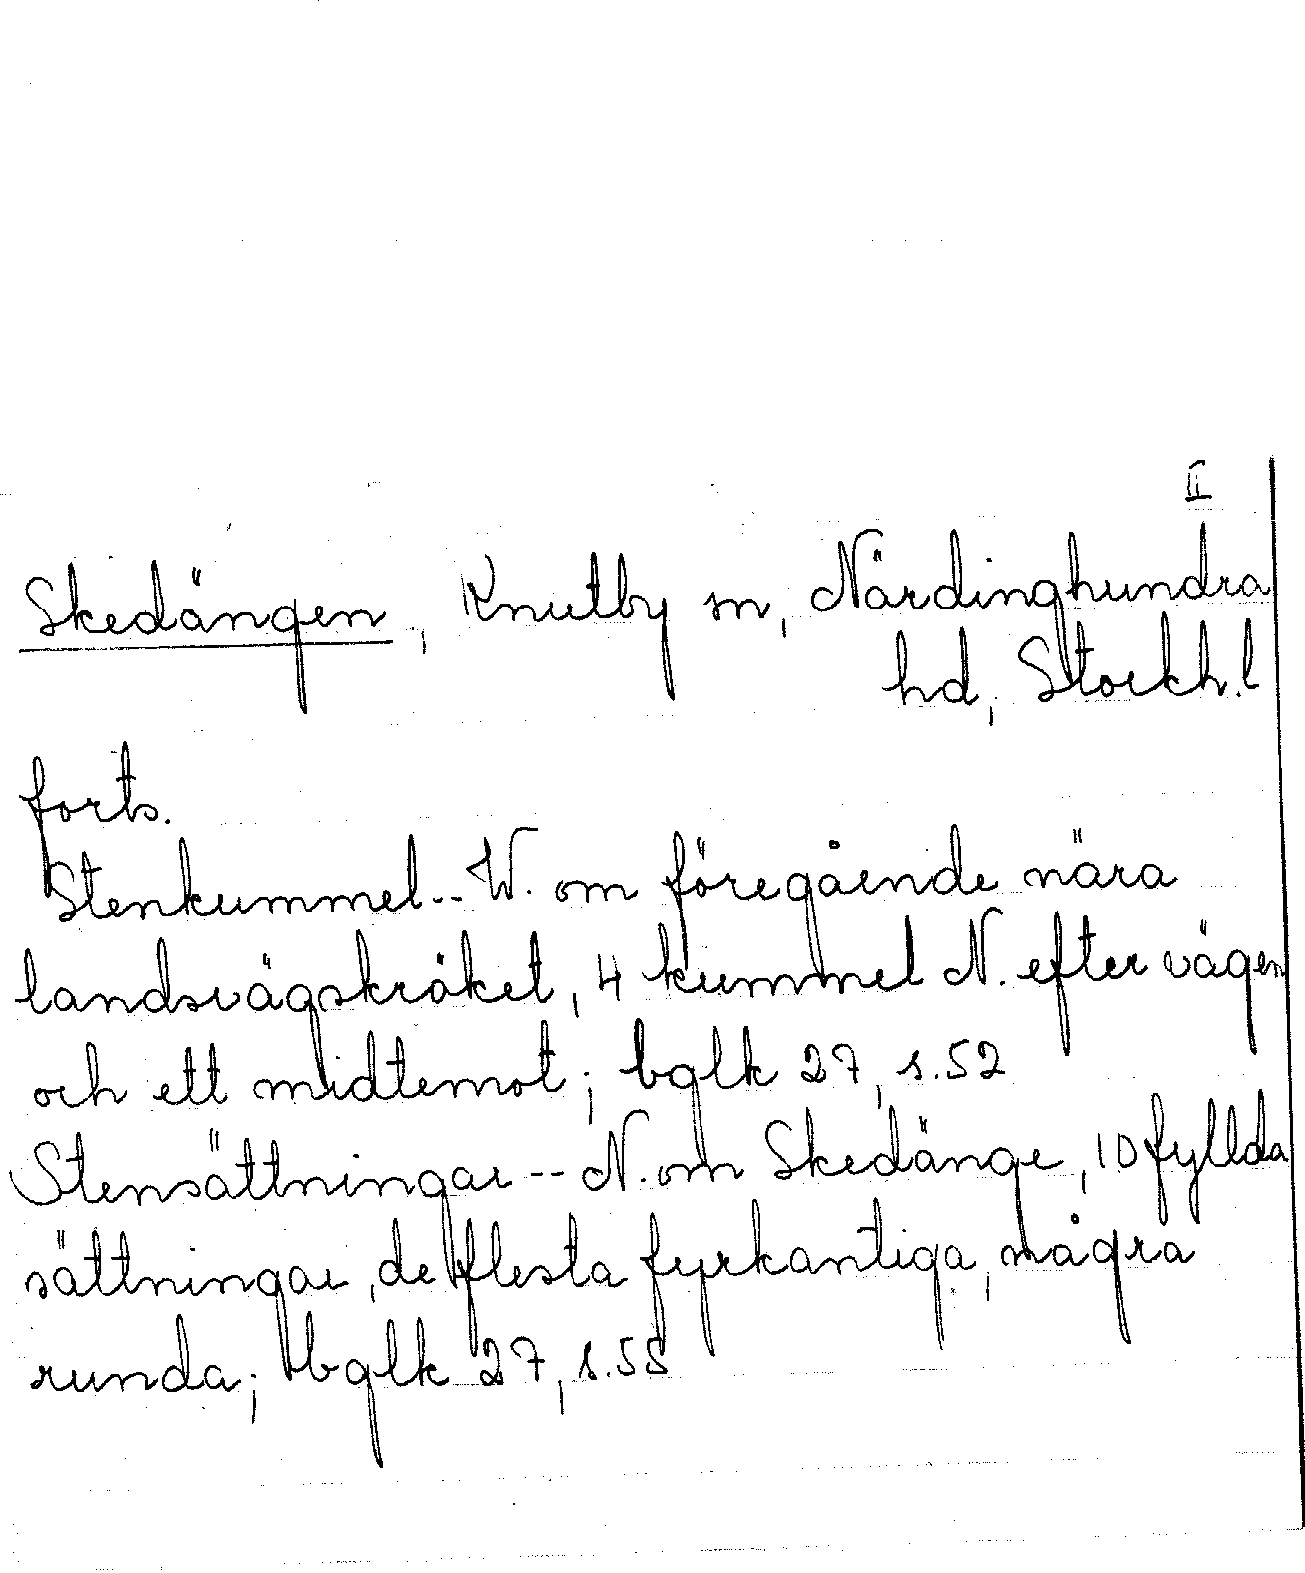 II
Skedängen, Knutby sn, Närdinghundra
hd, Stockh.l
forts.
Stenkummel -- W. om föregående nära
landsvägskröket, 4 kummel N. efter vägen
och ett midtemot; bglk 27, s.52
Stensättningar -- N. om Skedänge, 10 fyllda
sättningar, de flesta fyrkantiga, några
runda; bglk 27, s.55